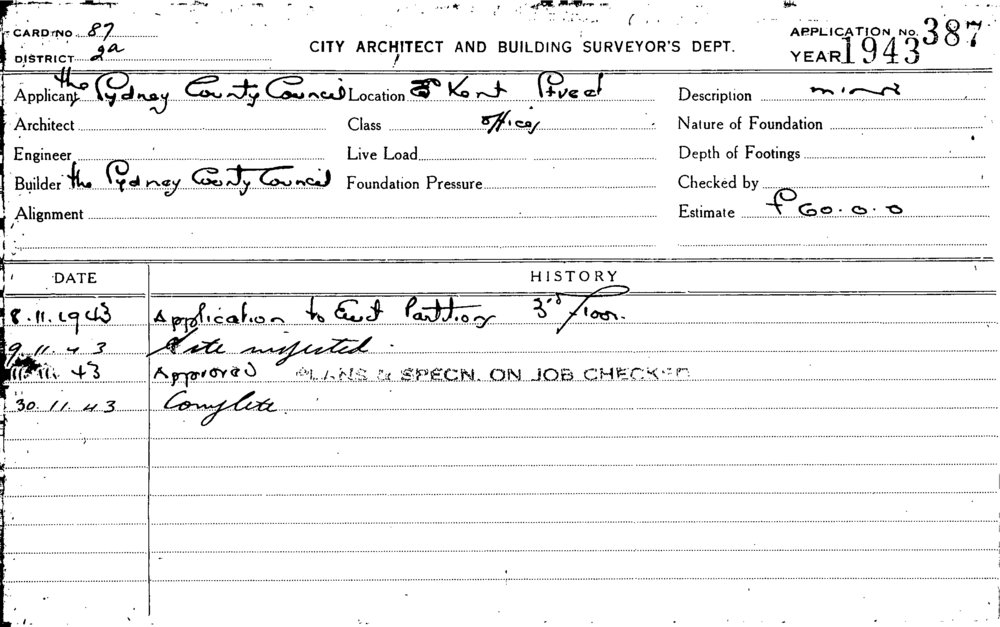 CARD NO. 87
DISTRICT 2a
CITY ARCHITECT AND BUILDING SURVEYOR'S DEPT.
APPLICATION No. 387
YEAR 1943
Applicant the Sydney County Council Location Kent Street Description minor
Architect Class offices Nature of Foundation
Engineer Live Load Depth of Footings
Builder the Sydney County Council Foundation Pressure Checked by
Alignment Estimate £60.0.0
DATE HISTORY
8.11.1943 Application to Erect Partitions 3rd Floor.
9.11.43 Site inspected.
11.11.43 Approved PLANS & SPECN. ON JOB CHECKED
30.11.43 Complete